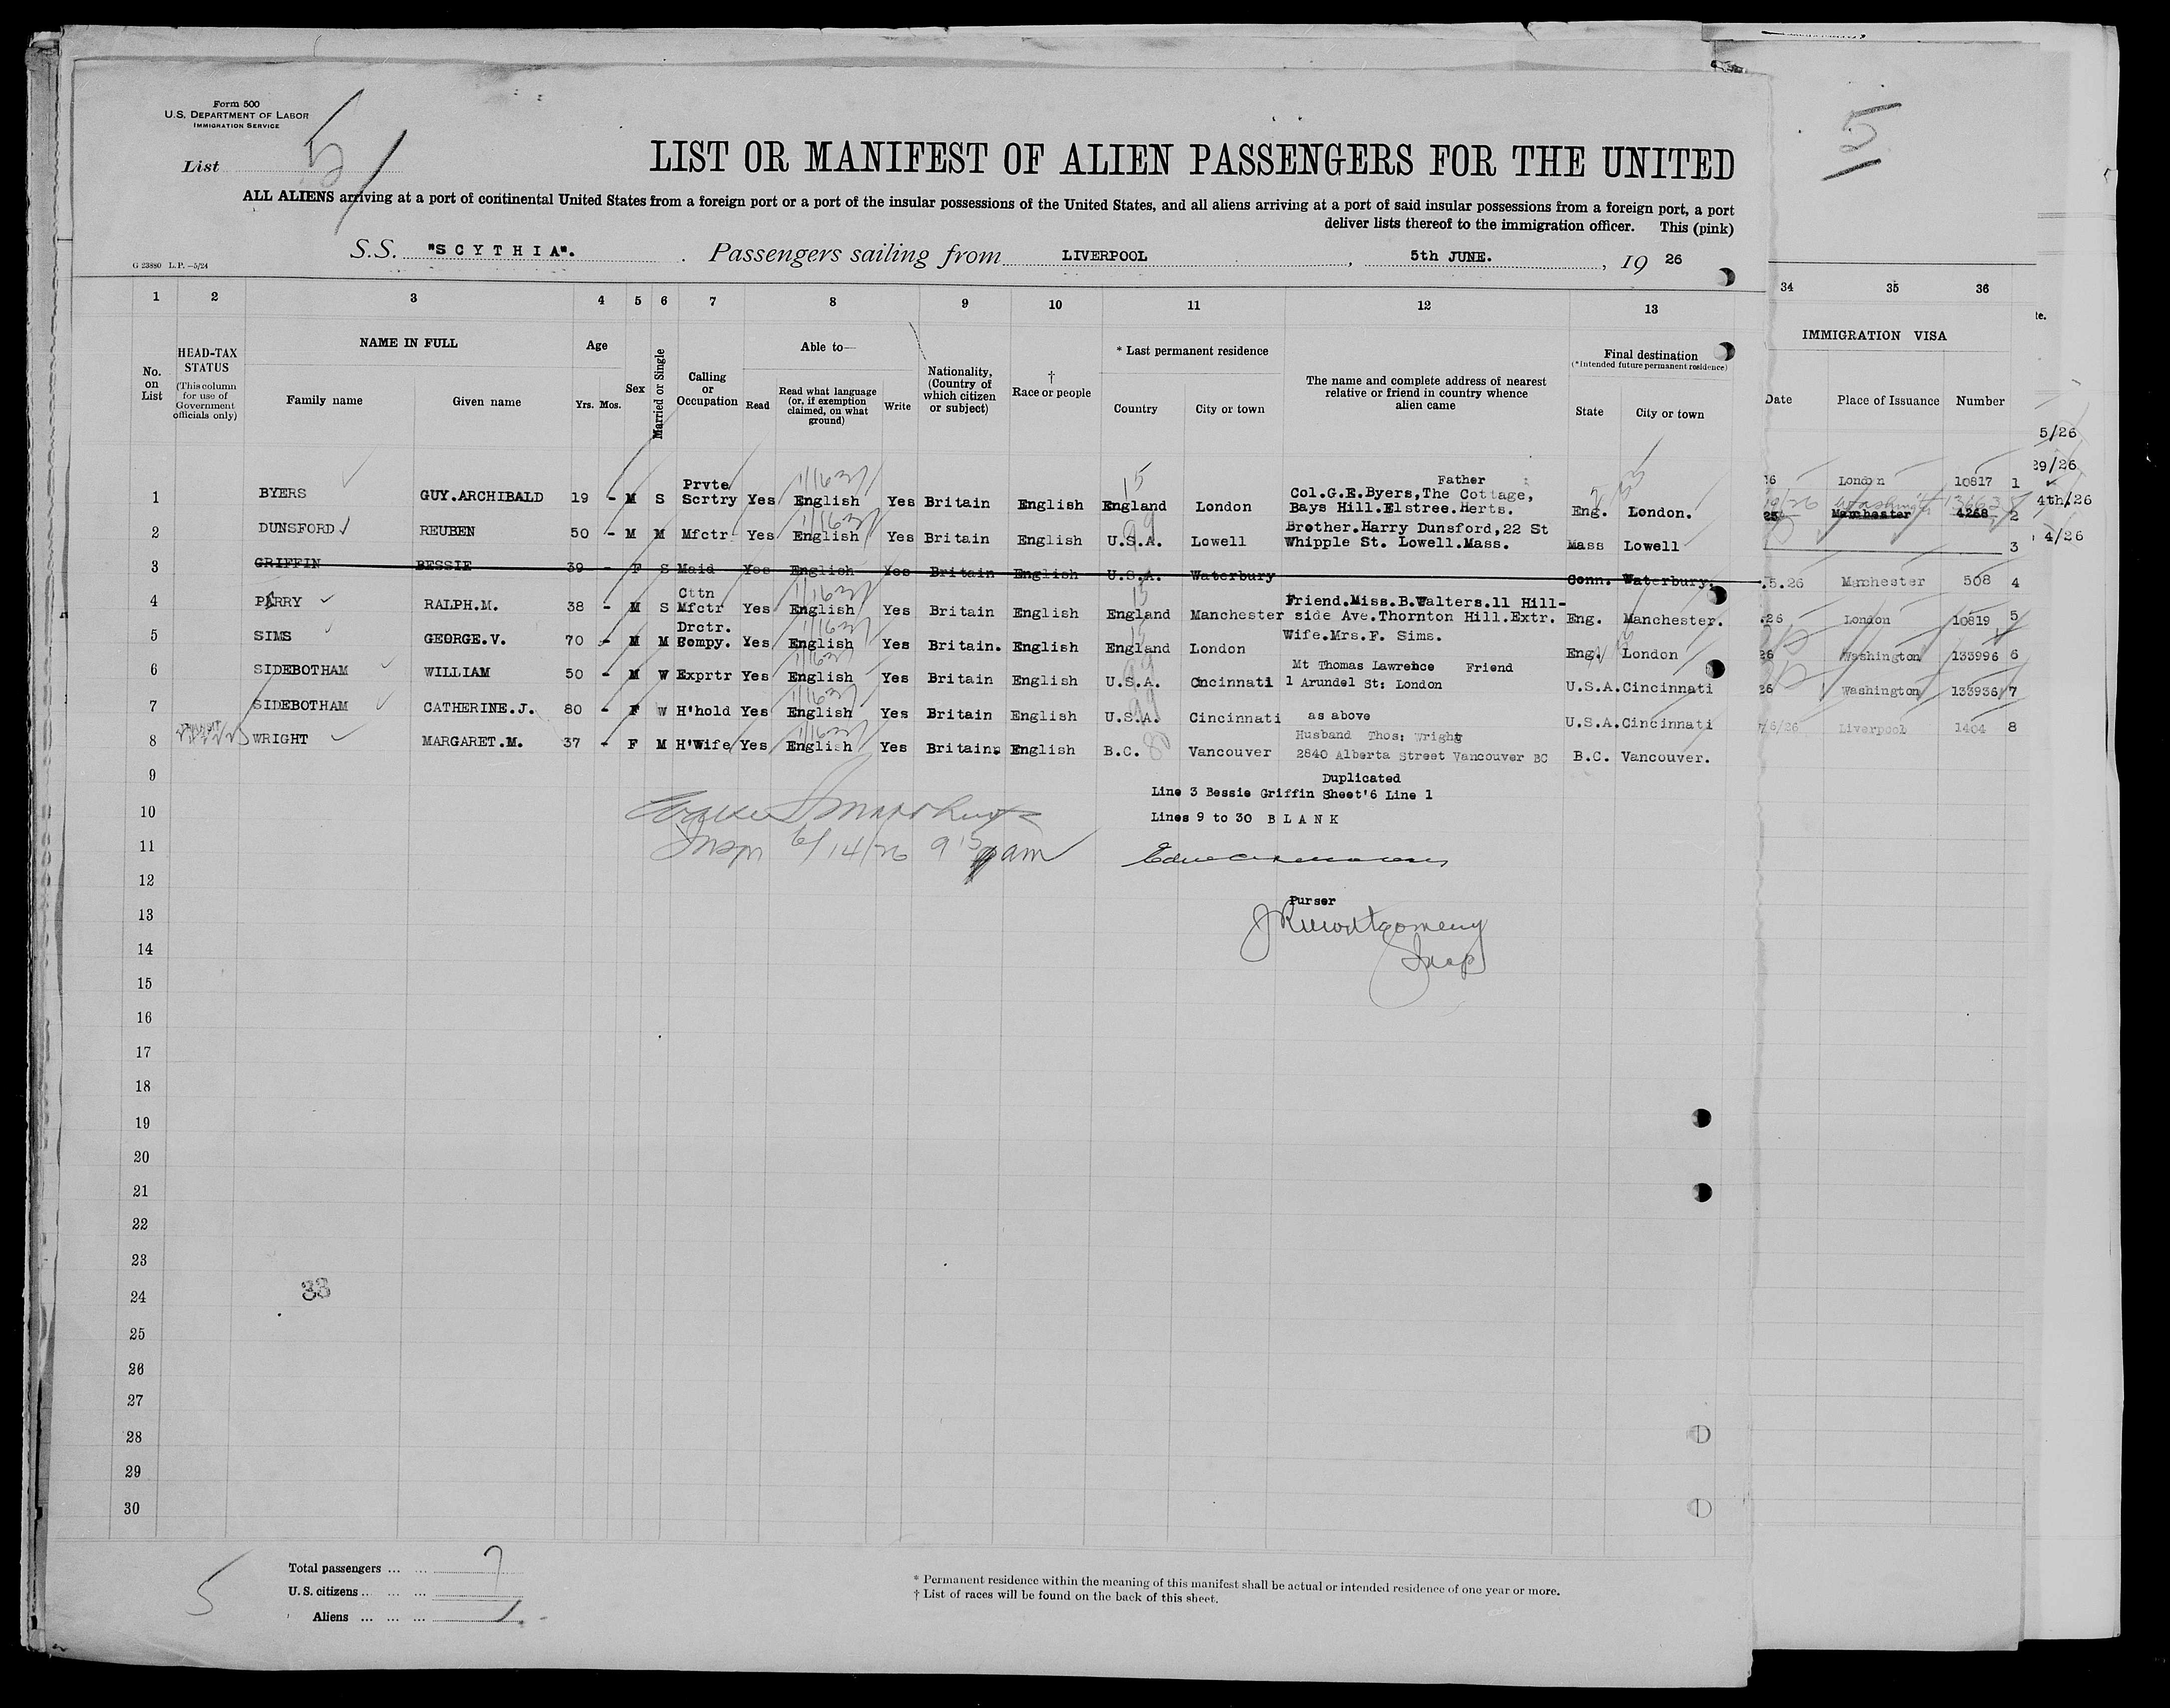 Form 500
U.S. DEPARTMENT OF LABOR
IMMIGRATION SERVICE
List 5
5
LIST OR MANIFEST OF ALIEN PASSENGERS FOR THE UNITED
ALL ALIENS arriving at a port of continental United States from a foreign port or a port of the insular possessions of the United States, and all aliens arriving at a port of said insular possessions from a foreign port, a port
deliver lists thereof to the immigration officer. This (pink)
S.S. "SCYTHIA". Passengers sailing from LIVERPOOL, 5th JUNE., 19 26
G 23880 L.P.—5/24
1 2 3 4 5 6 7 8 9 10 11 12 13 34 35 36
No. on List
HEAD-TAX STATUS
(This column for use of Government officials only)
NAME IN FULL
Family name Given name
Age
Yrs. Mos.
Sex
Married or Single
Calling or Occupation
Able to—
Read
Read what language (or, if exemption claimed, on what ground)
Write
Nationality, (Country of which citizen or subject)
† Race or people
* Last permanent residence
Country City or town
The name and complete address of nearest relative or friend in country whence alien came
Final destination
(*Intended future permanent residence)
State City or town
IMMIGRATION VISA
Date Place of Issuance Number
te.
5/26
29/26
4th/26
4/26
1 BYERS GUY.ARCHIBALD 19 - M S Prvte Scrtry Yes English Yes Britain English England London Father Col.G.E.Byers,The Cottage, Bays Hill.Elstree.Herts. Eng. London. 26 London 10817 1
2 DUNSFORD REUBEN 50 - M M Mfctr Yes English Yes Britain English U.S.A. Lowell Brother.Harry Dunsford,22 St Whipple St. Lowell.Mass. Mass Lowell 25 Manchester 4268 2
3 GRIFFIN BESSIE 39 - F S Maid Yes English Yes Britain English U.S.A. Waterbury Conn. Waterbury. 3
4 PARRY RALPH.M. 38 - M S Cttn Mfctr Yes English Yes Britain English England Manchester Friend.Miss.B.Walters.11 Hill-side Ave.Thornton Hill.Extr. Eng. Manchester. .5.26 Manchester 508 4
5 SIMS GEORGE.V. 70 - M M Drctr. Compy. Yes English Yes Britain. English England London Wife.Mrs.F. Sims. Eng. London .26 London 10819 5
6 SIDEBOTHAM WILLIAM 50 - M W Exprtr Yes English Yes Britain English U.S.A. Cncinnati Mt Thomas Lawrence Friend 1 Arundel St: London U.S.A. Cincinnati 26 Washington 133996 6
7 SIDEBOTHAM CATHERINE.J. 80 - F W H'hold Yes English Yes Britain English U.S.A. Cincinnati as above U.S.A. Cincinnati 26 Washington 133936 7
8 WRIGHT MARGARET.M. 37 - F M H'Wife Yes English Yes Britain. English B.C. Vancouver Husband Thos: Wright 2840 Alberta Street Vancouver BC B.C. Vancouver. 6/26 Liverpool 1404 8
9
Duplicated
Line 3 Bessie Griffin Sheet'6 Line 1
10
Lines 9 to 30 BLANK
11
Insp 6/14/26 9 15 am
12
13
Purser
JR Montgomery
Insp
14
15
16
17
18
19
20
21
22
23
24
33
25
26
27
28
29
30
5
Total passengers ... ... 7
U.S. citizens ... ... ...
Aliens ... ... ...
* Permanent residence within the meaning of this manifest shall be actual or intended residence of one year or more.
† List of races will be found on the back of this sheet.